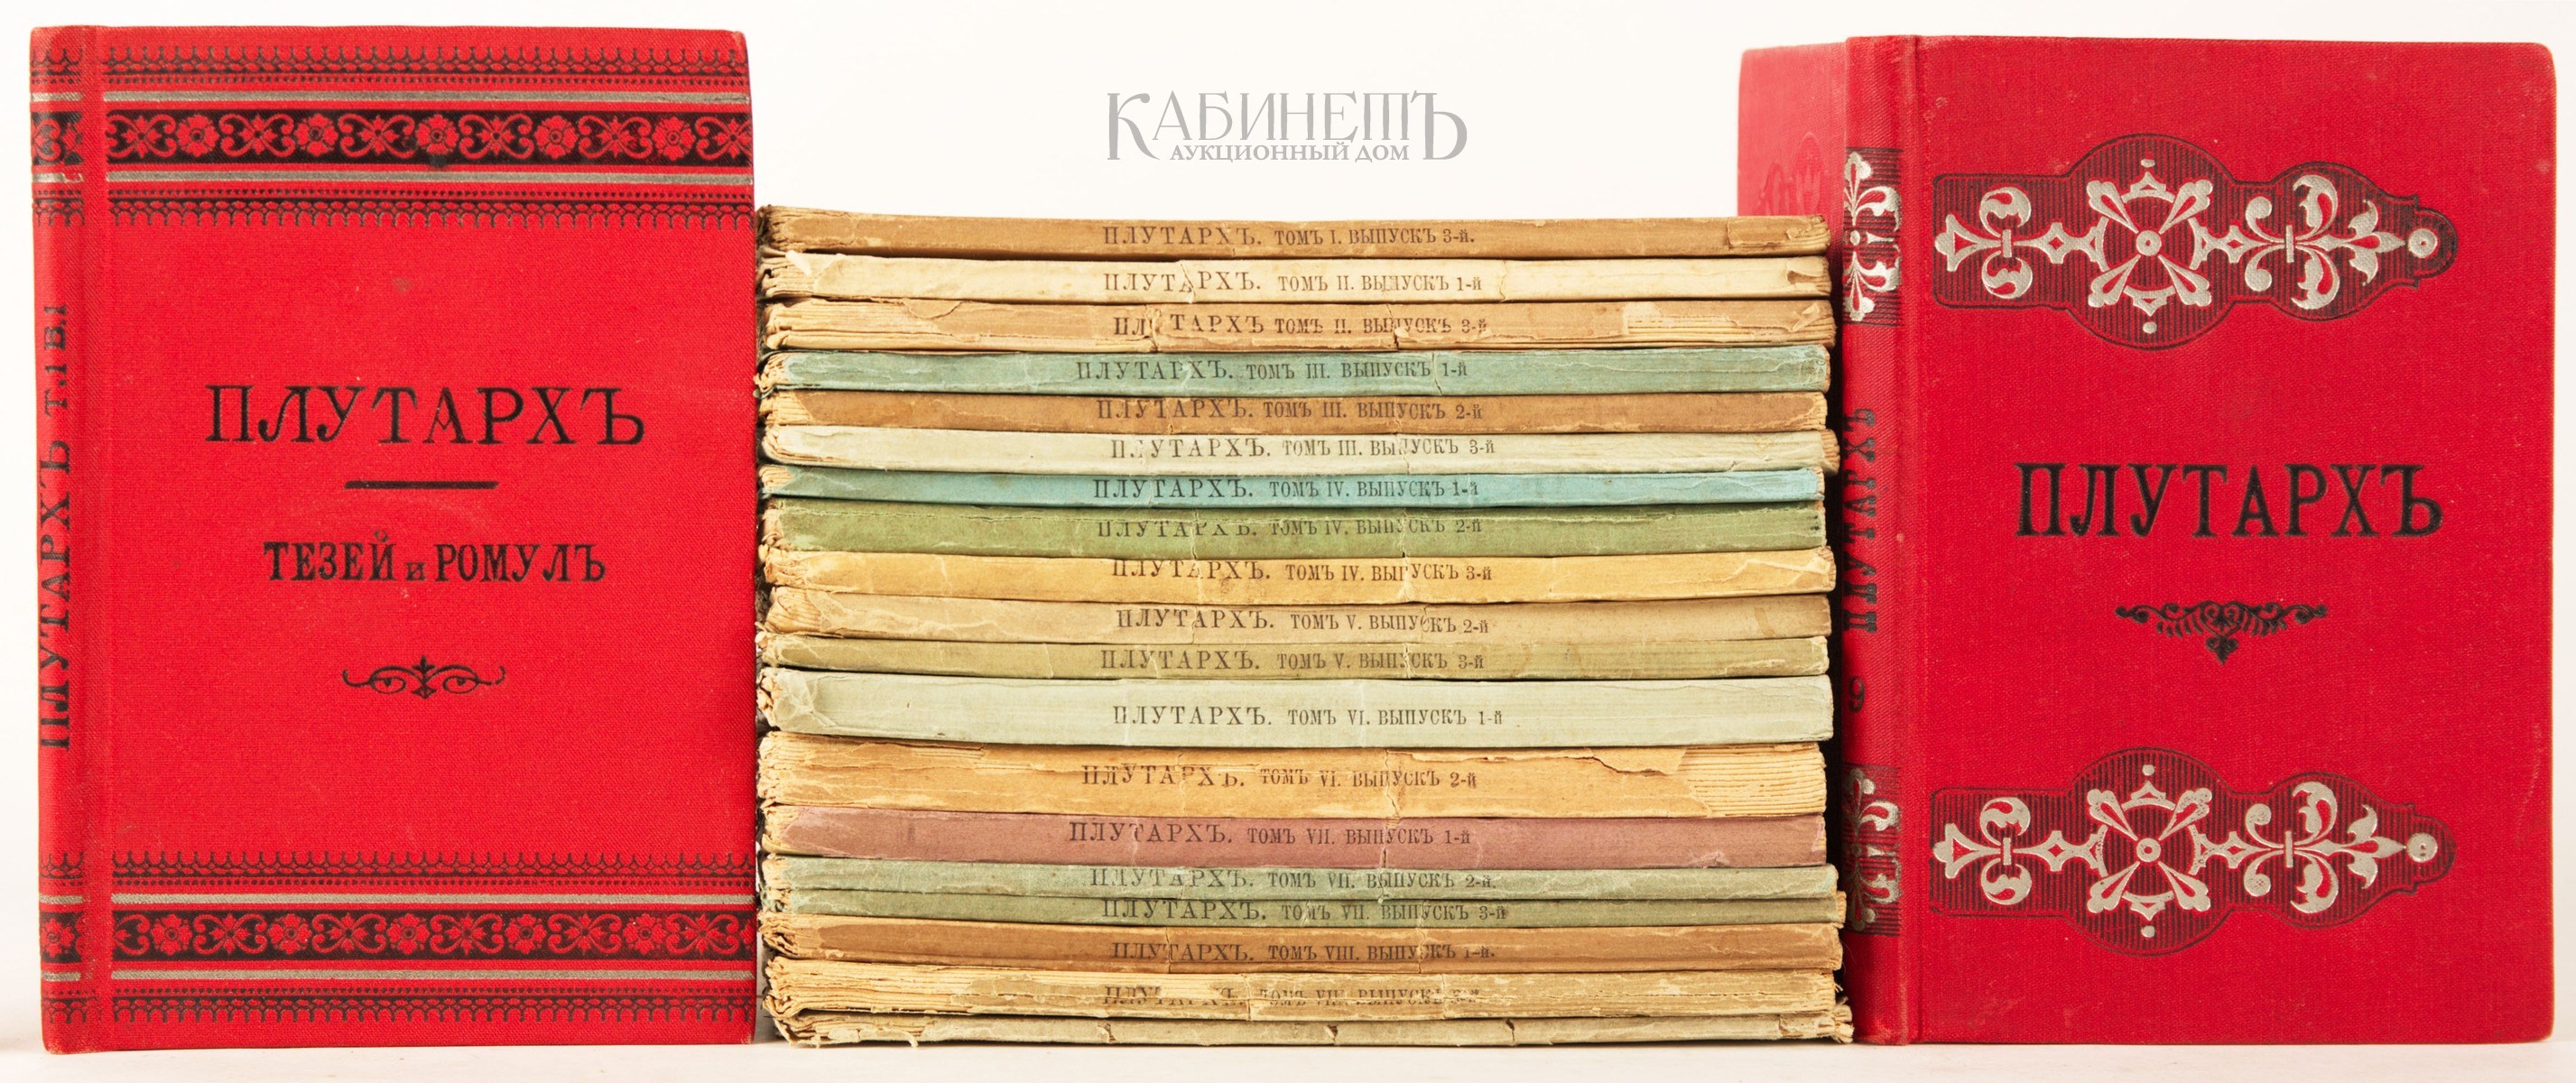 КАБИНЕТЪ
АУКЦИОННЫЙ ДОМ
ПЛУТАРХЪ Т.1 В.1
ПЛУТАРХЪ
ТЕЗЕЙ и РОМУЛЪ
ПЛУТАРХЪ. ТОМЪ I. ВЫПУСКЪ 3-й.
ПЛУТАРХЪ. ТОМЪ II. ВЫПУСКЪ 1-й
ПЛУТАРХЪ ТОМЪ II. ВЫПУСКЪ 3-й
ПЛУТАРХЪ. ТОМЪ III. ВЫПУСКЪ 1-й
ПЛУТАРХЪ. ТОМЪ III. ВЫПУСКЪ 2-й
ПЛУТАРХЪ. ТОМЪ III. ВЫПУСКЪ 3-й
ПЛУТАРХЪ. ТОМЪ IV. ВЫПУСКЪ 1-й
ПЛУТАРХЪ. ТОМЪ IV. ВЫПУСКЪ 2-й
ПЛУТАРХЪ. ТОМЪ IV. ВЫПУСКЪ 3-й
ПЛУТАРХЪ. ТОМЪ V. ВЫПУСКЪ 2-й
ПЛУТАРХЪ. ТОМЪ V. ВЫПУСКЪ 3-й
ПЛУТАРХЪ. ТОМЪ VI. ВЫПУСКЪ 1-й
ПЛУТАРХЪ. ТОМЪ VI. ВЫПУСКЪ 2-й
ПЛУТАРХЪ. ТОМЪ VII. ВЫПУСКЪ 1-й
ПЛУТАРХЪ. ТОМЪ VII. ВЫПУСКЪ 2-й.
ПЛУТАРХЪ. ТОМЪ VII. ВЫПУСКЪ 3-й
ПЛУТАРХЪ. ТОМЪ VIII. ВЫПУСКЪ 1-й.
ПЛУТАРХЪ. ТОМЪ VIII. ВЫПУСКЪ
ПЛУТАРХЪ
9
ПЛУТАРХЪ